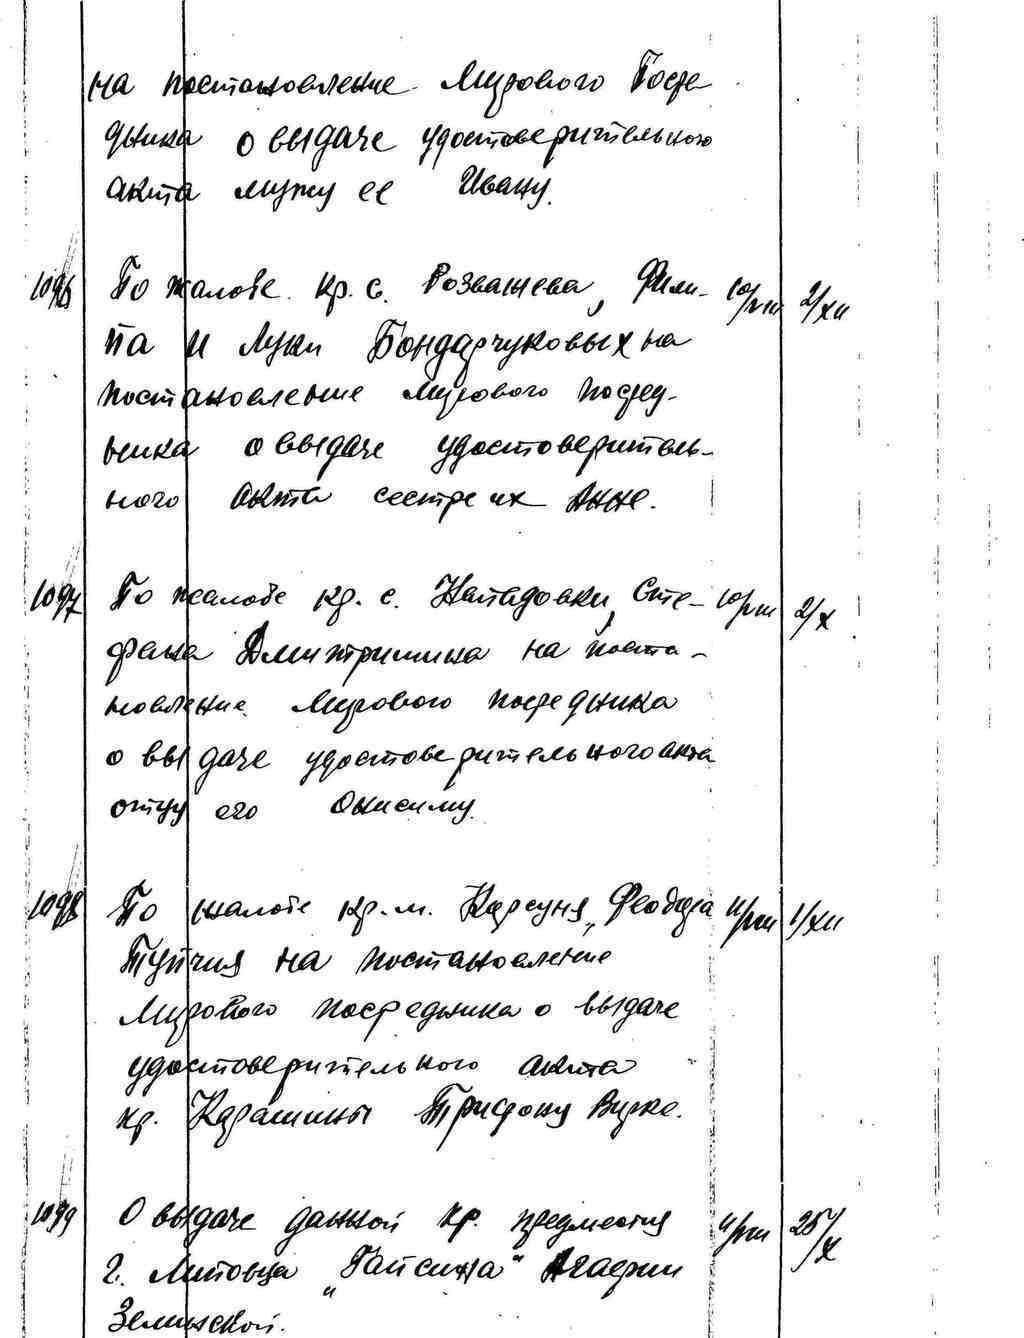 на постановление Мирового Посре-
дника о выдаче удостоверительного
акта мужу ее Ивану.
1096 По жалобе кр. с. Розважева, Фили- 10/VIII 2/XII
па и Луки Бондарчуковых на
постановление Мирового посред-
ника о выдаче удостоверитель-
ного акта сестре их Анне.
1097 По жалобе кр. с. Нападовки, Сте- 10/VIII 2/X
фана Дмитришина на поста-
новление Мирового посредника
о выдаче удостоверительного акта
отцу его Онисиму.
1098 По жалобе кр. м. Корсуня, Феодора 11/VIII 1/XII
Тупчия на постановление
Мирового посредника о выдаче
удостоверительного акта
кр. Карашины Трифону Вирке.
1099 О выдаче данной кр. предместия 11/VIII 25/X
г. Липовца „Гайсина" Агафии
Зелинской.